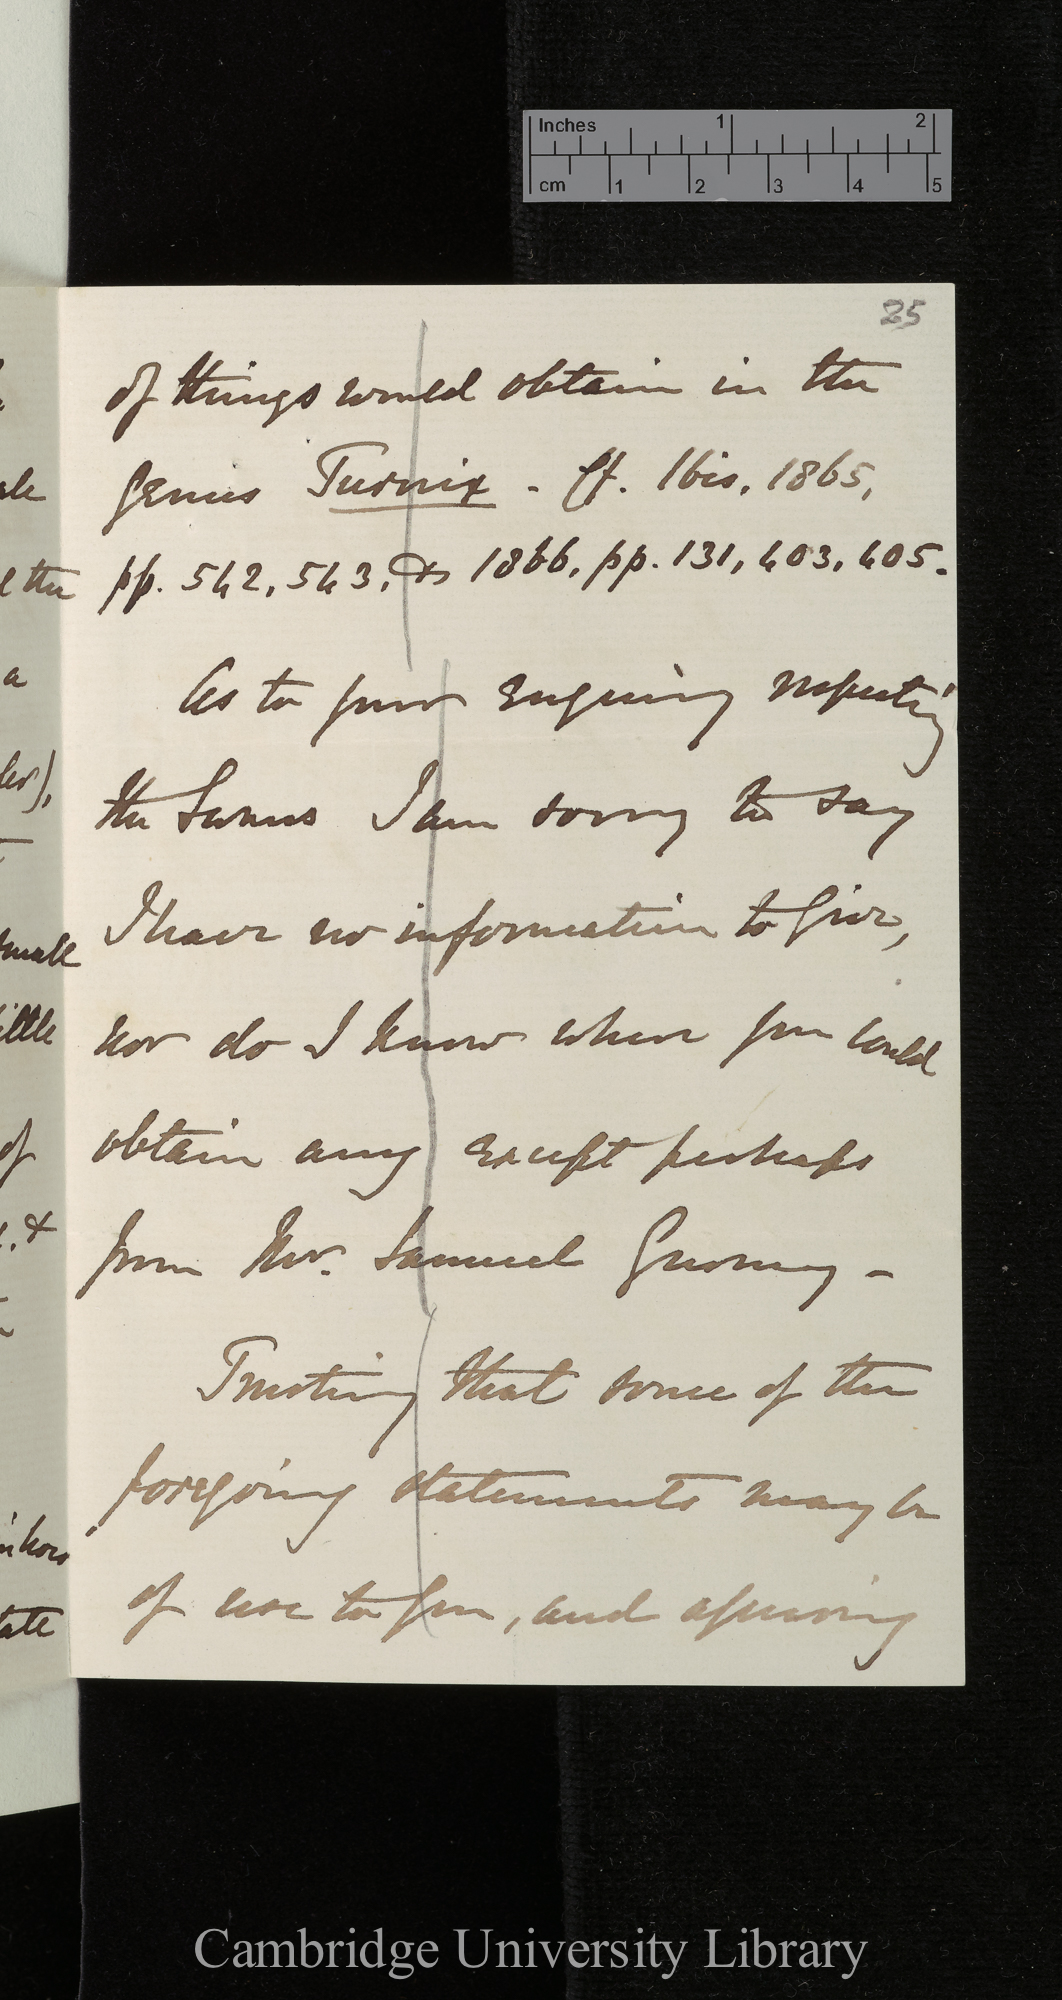 Inches 1 2
cm 1 2 3 4 5
25
of things would obtain in the
genus Turnix - Cf. Ibis, 1865,
pp. 542, 543, & 1866, pp. 131, 403, 405.
As to your enquiry respecting
the Swans I am sorry to say
I have no information to give,
nor do I know where you could
obtain any except perhaps
from Mr. Samuel Gurney -
Trusting that some of the
foregoing statements may be
of use to you, and assuring
ale
l the
a
ler),
male
ittle
of
&
tate
Cambridge University Library